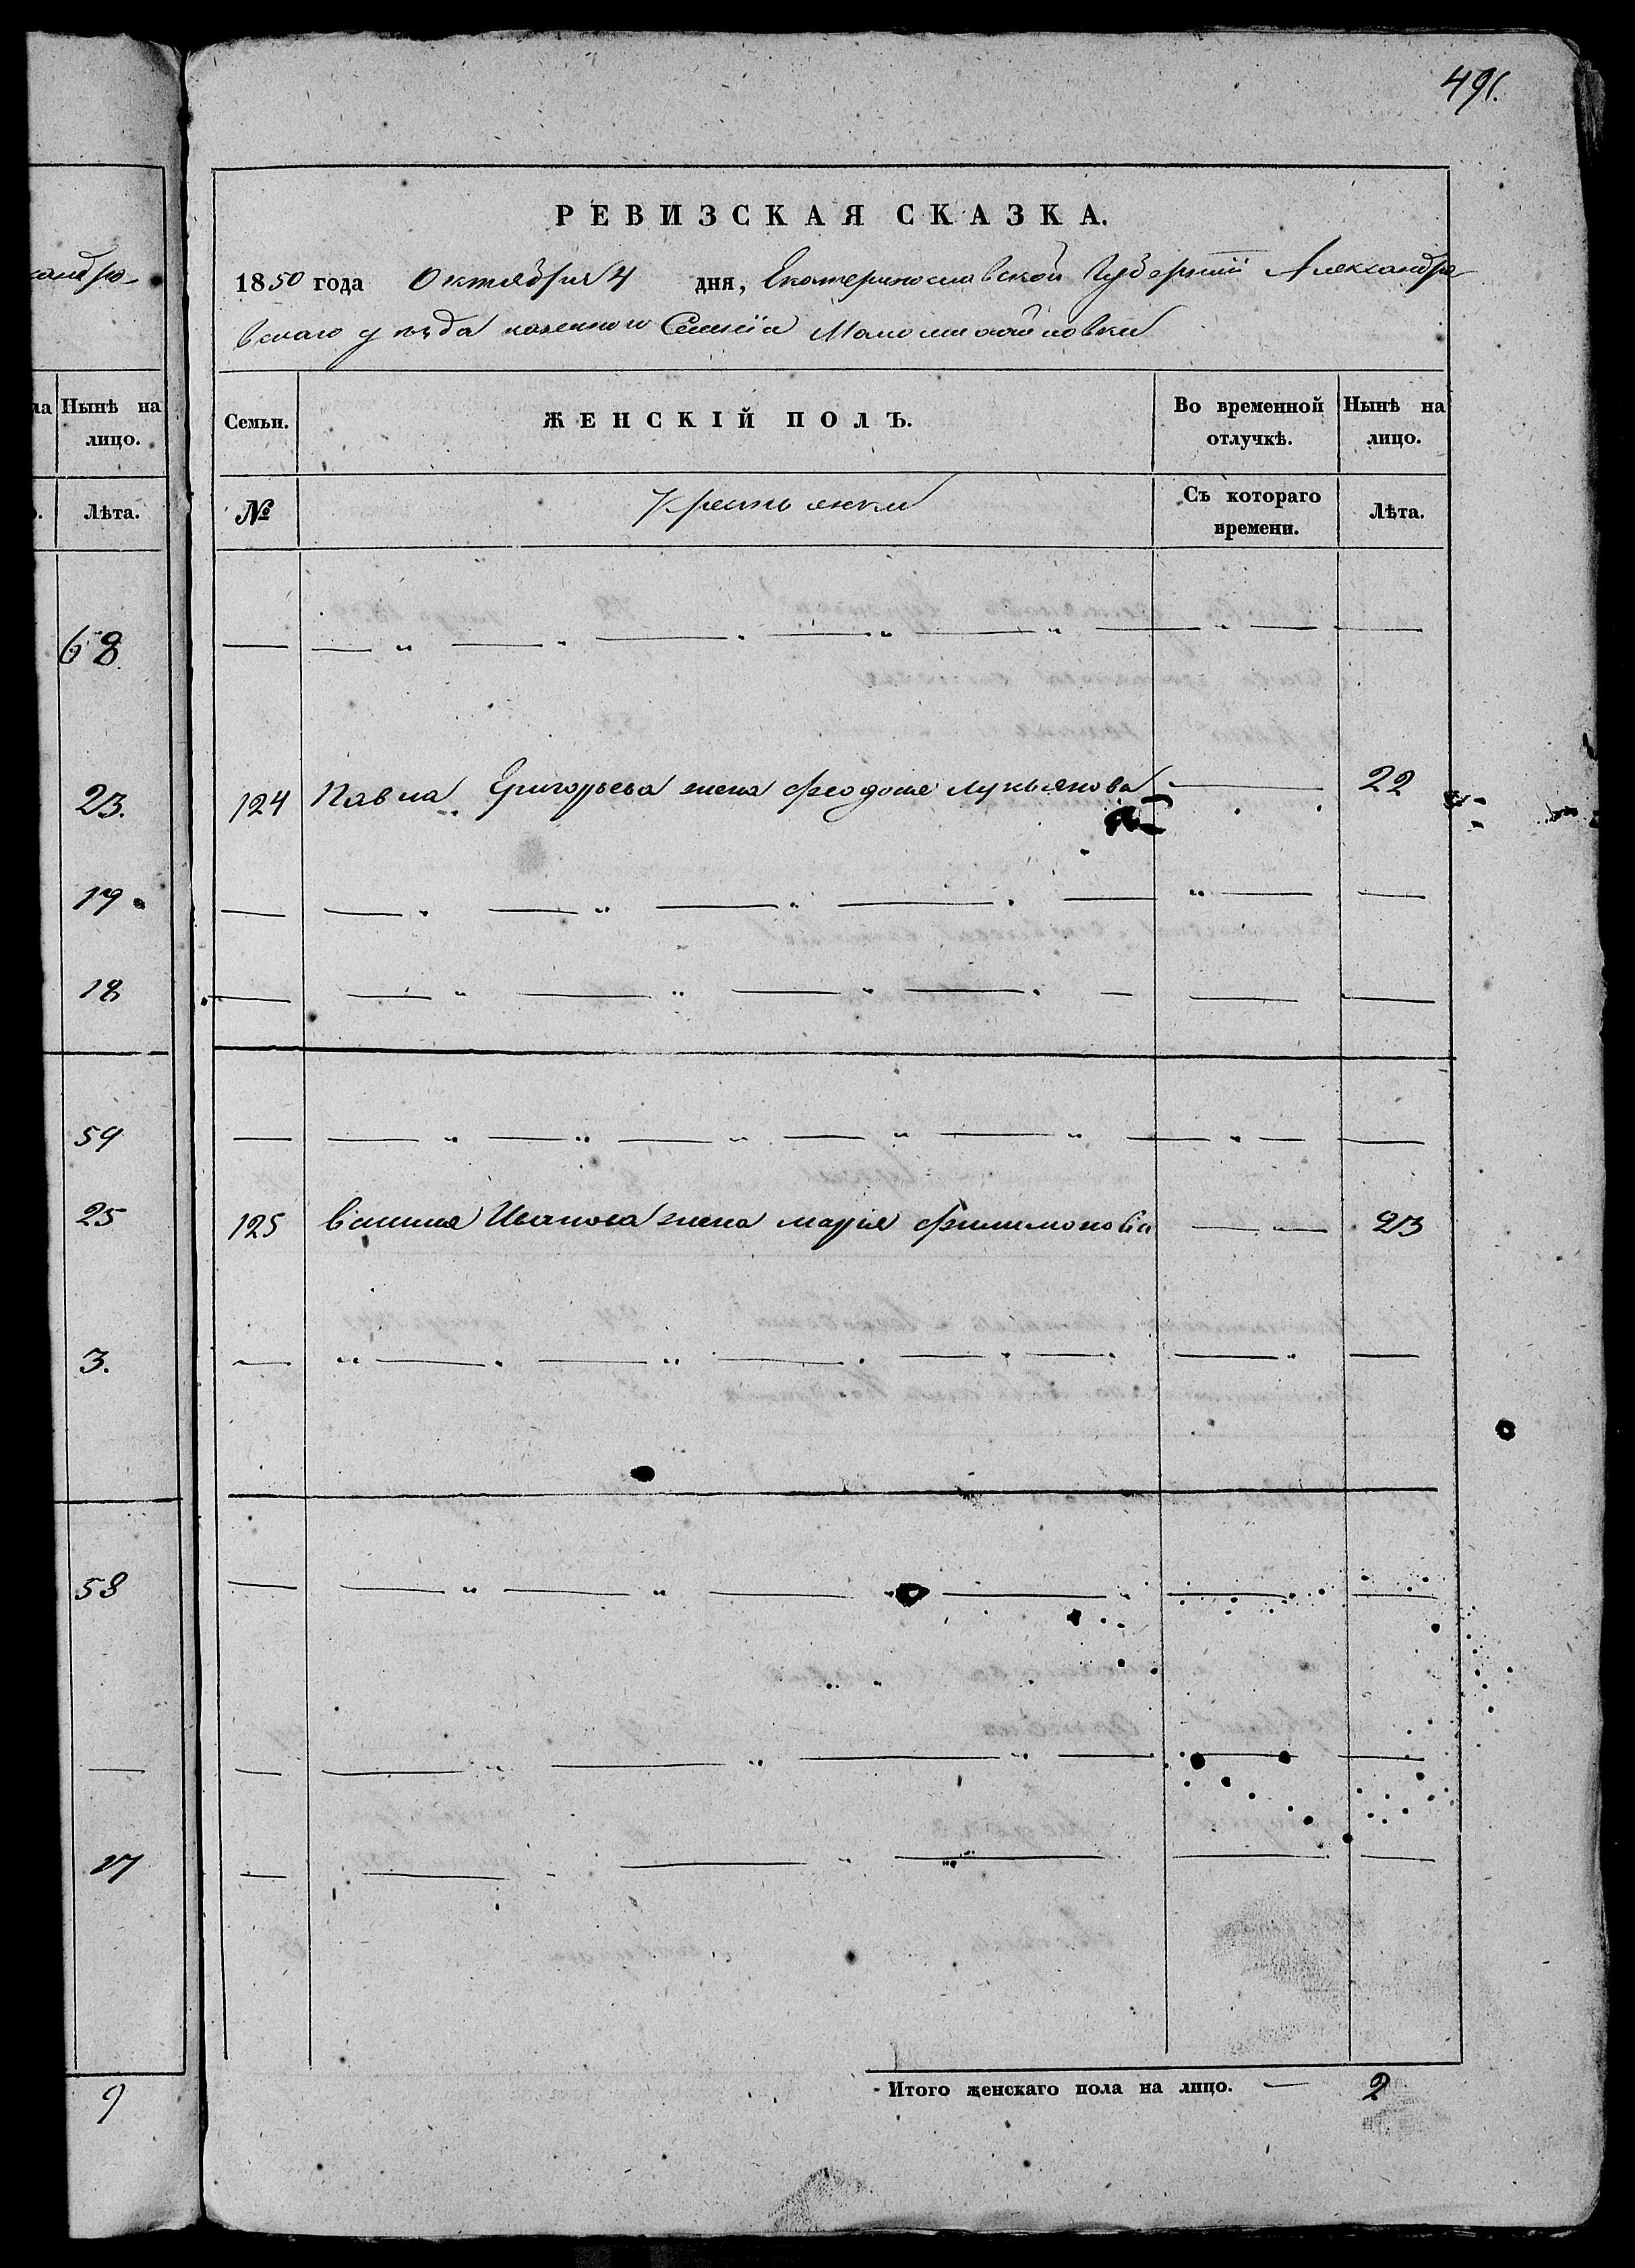 491.
РЕВИЗСКАЯ СКАЗКА.
1850 года Октября 4 дня, Екатеринославской Губернии Александро
вскаго уезда казенного Селенія
кандро-
ла Нынѣ на лицо.
Лѣта.
Семьи. ЖЕНСКІЙ ПОЛЪ. Во временной отлучкѣ. Нынѣ на лицо.
№ Крестьянки Съ котораго времени. Лѣта.
68
23.
124 Павла Григорьева жена Феодосия Лукьянова 22
19
18
59
25
125 Иванова жена Мария Филимонова 23
3.
58
17
Итого женскаго пола на лицо. — 2
9